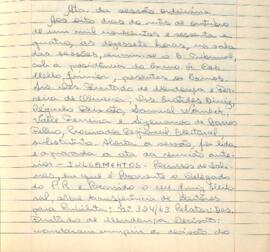 Ata da sessão ordinária
Aos oito dias do mês de outubro
de um mil novecentos e sessenta e
quatro, às dezessete horas, na sala
das sessões, reuniu-se o E. Tribunal,
sob a presidência do Exmo. Sr. Des.
Mello Júnior, presentes os Exmos.
Srs. Des. Furtado de Mendonça e Fer-
reira de Oliveira; Drs.
Valle Ferreira e Sigismundo de Barros
Filho, Procurador Regional Eleitoral
substituto. Aberta a sessão, foi lida
e aprovada a ata da reunião anteri-
or. - JULGAMENTOS - Recursos de Sali-
nas, em que é Recorrente o Delegado
do P.R. e Recorrido o Juiz Eleito-
ral, sobre transferência de eleitores
para Nº 324/63 Relator: Des.
Furtado de Mendonça Decisão:
a decisão do